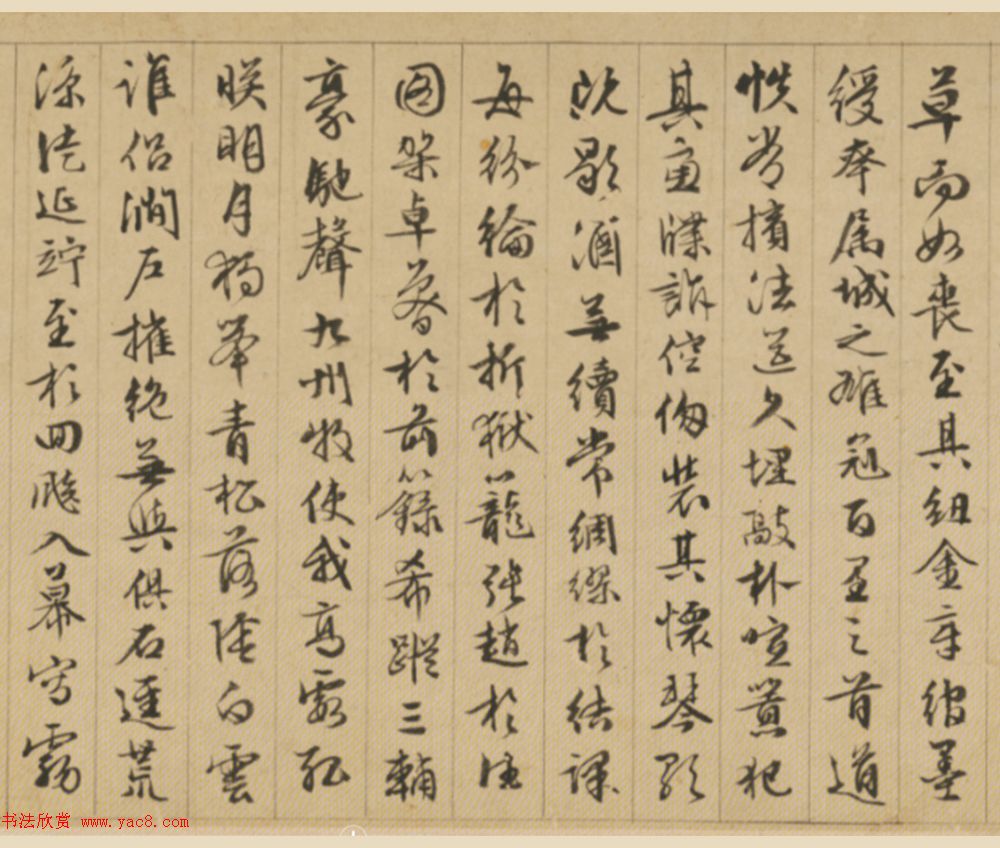 草而如喪至其紐金章綰墨
綬属城之雄冠百里之首道
帙長擯法筵久埋敲朴喧囂犯
其慮牒訴倥偬裝其懷琴歌
既歇酒無續常綢繆於結課
每紛綸於折獄籠張趙於往
圖架卓魯於前籙希蹤三輔
豪馳聲九州牧使我高霞孤
暎明月獨舉青松落陰白雲
誰侶澗戶摧絕無與俱石逕荒
涼徒延竚至於回飈入幕寫霧
书法欣赏 www.yac8.com